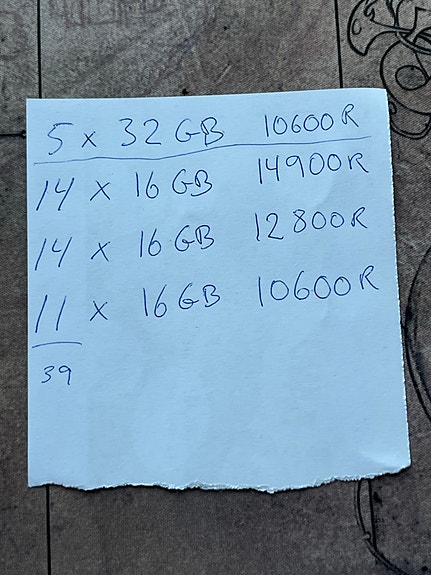 5 x 32 GB 10600R
14 x 16 GB 14900R
14 x 16 GB 12800R
11 x 16 GB 10600R
39